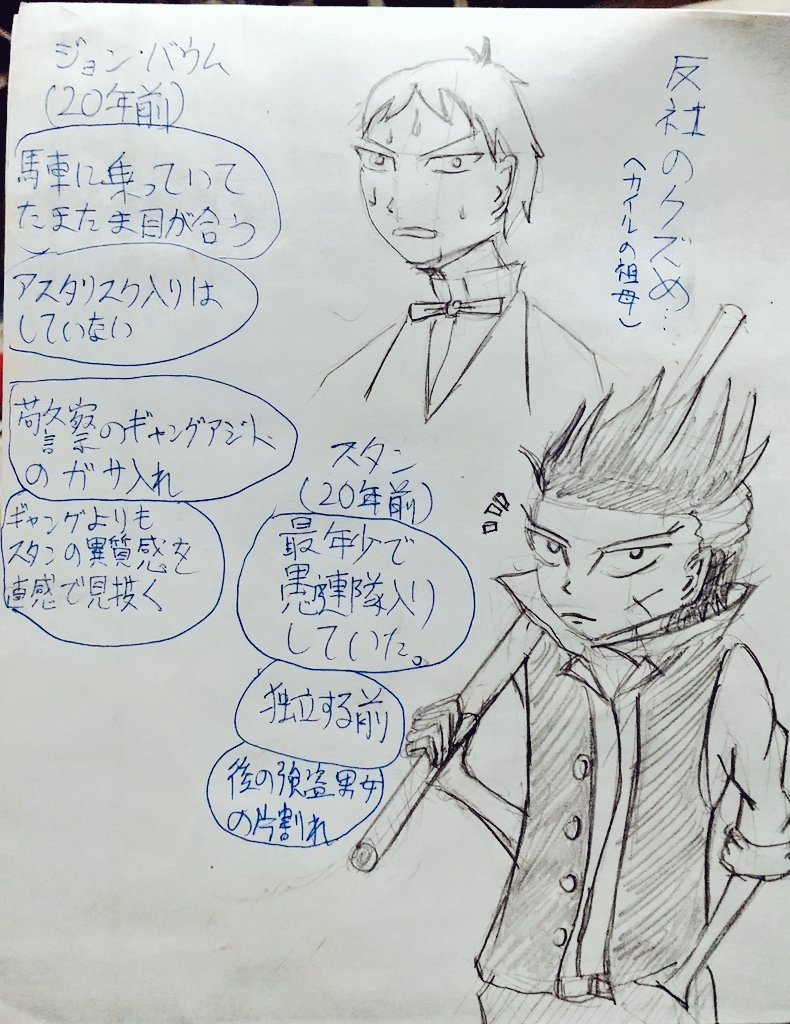 ジョン・バウム
(20年前)
馬車に乗っていて
たまたま目が合う
アスタリスク入りは
していない
警察のギャングアジト
のガサ入れ
ギャングよりも
スタンの異質感を
直感で見抜く
反社のクズめ…
(カイルの祖母)
スタン
(20年前)
最年少で
愚連隊入り
していた。
独立する前
後の強盗男女
の片割れ